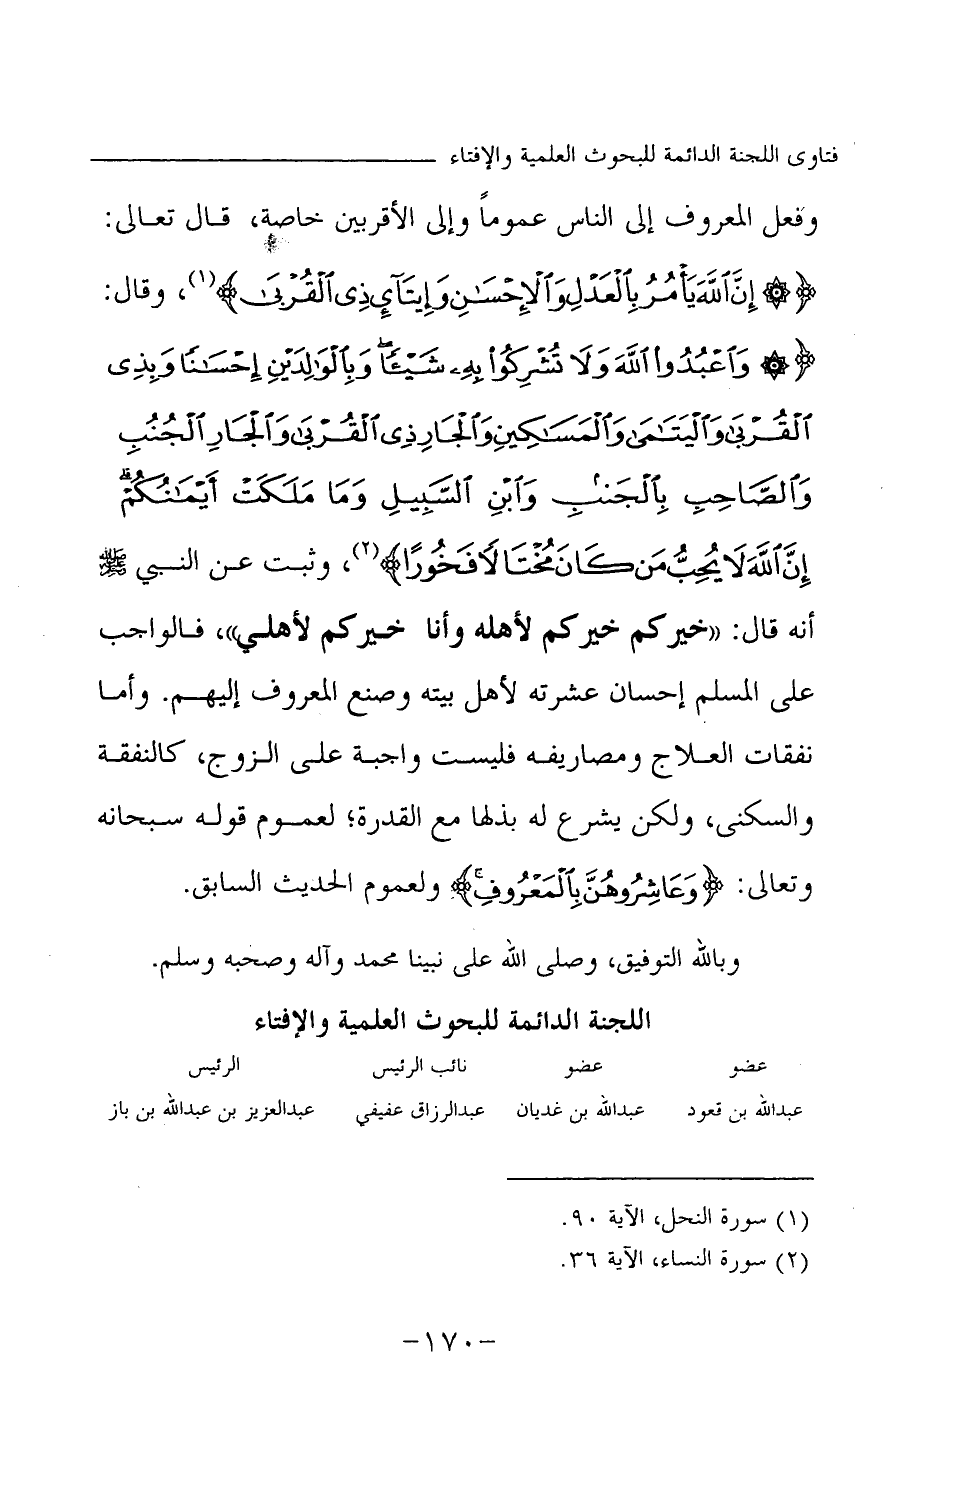 فتاوى اللجنة الدائمة للبحوث العلمية والإفتاء
وفعل المعروف إلى الناس عموماً وإلى الأقربين خاصة، قال تعالى:
﴿۞ إِنَّ ٱللَّهَ يَأْمُرُ بِٱلْعَدْلِ وَٱلْإِحْسَٰنِ وَإِيتَآيِٕ ذِى ٱلْقُرْبَىٰ﴾(١)، وقال:
﴿۞ وَٱعْبُدُوا۟ ٱللَّهَ وَلَا تُشْرِكُوا۟ بِهِۦ شَيْـًٔا ۖ وَبِٱلْوَٰلِدَيْنِ إِحْسَٰنًا وَبِذِى
ٱلْقُرْبَىٰ وَٱلْيَتَٰمَىٰ وَٱلْمَسَٰكِينِ وَٱلْجَارِ ذِى ٱلْقُرْبَىٰ وَٱلْجَارِ ٱلْجُنُبِ
وَٱلصَّاحِبِ بِٱلْجَنۢبِ وَٱبْنِ ٱلسَّبِيلِ وَمَا مَلَكَتْ أَيْمَٰنُكُمْ ۗ
إِنَّ ٱللَّهَ لَا يُحِبُّ مَن كَانَ مُخْتَالًا فَخُورًا﴾(٢)، وثبت عن النبي ﷺ
أنه قال: «خيركم خيركم لأهله وأنا خيركم لأهلي»، فالواجب
على المسلم إحسان عشرته لأهل بيته وصنع المعروف إليهم. وأما
نفقات العلاج ومصاريفه فليست واجبة على الزوج، كالنفقة
والسكنى، ولكن يشرع له بذلها مع القدرة؛ لعموم قوله سبحانه
وتعالى: ﴿وَعَاشِرُوهُنَّ بِٱلْمَعْرُوفِ ۚ﴾ ولعموم الحديث السابق.
وبالله التوفيق، وصلى الله على نبينا محمد وآله وصحبه وسلم.
اللجنة الدائمة للبحوث العلمية والإفتاء
عضو عضو نائب الرئيس الرئيس
عبدالله بن قعود عبدالله بن غديان عبدالرزاق عفيفي عبدالعزيز بن عبدالله بن باز
(١) سورة النحل، الآية ٩٠.
(٢) سورة النساء، الآية ٣٦.
-١٧٠-